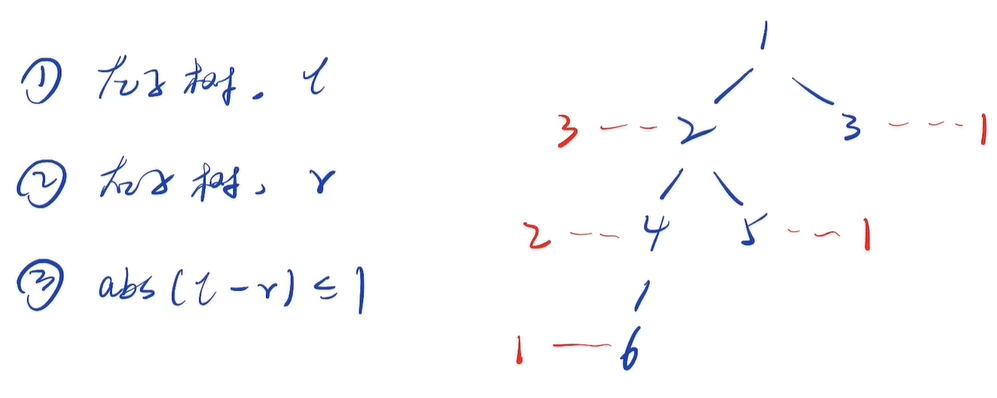 ① 左子树. l
② 右子树, r
③ abs(l-r)≤1
1
3 --- 2 3 --- 1
2 --- 4 5 --- 1
1 — 6